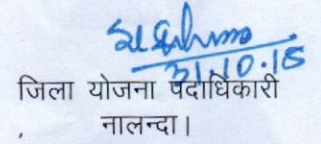 31.10.18
जिला योजना पदाधिकारी
नालन्दा।